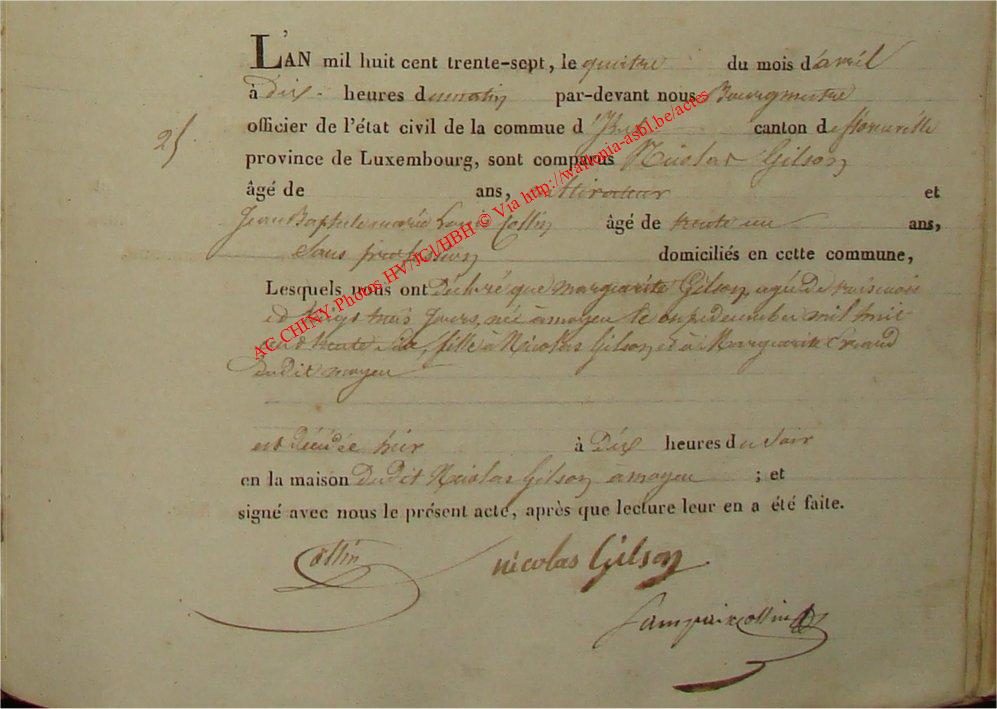 L'AN mil huit cent trente-sept, le quatre du mois d'avril
à dix heures du matin par-devant nous Bourgmestre
officier de l'état civil de la commue d' canton de florenville
25
province de Luxembourg, sont comparus Nicolas Gilson
âgé de ans, cultivateur et
Jean Baptiste marie Louis Collin âgé de trente un ans,
Sans profession domiciliés en cette commune,
Lesquels nous ont Déclaré que Marguerite Gilson, agée de trois mois
et vingt trois jours, née à moyen le onze décember mil huit
cent trente six, fille à Nicolas Gilson et à Marguerite
dudit moyen
est Décédée hier à Dix heures du Soir
en la maison Dudit Nicolas Gilson à moyen ; et
signé avec nous le présent acte, après que lecture leur en a été faite.
Collin nicolas Gilson
collin
AC CHINY Photos HV/JCl/HBH © Via http://wallonia-asbl.be/actes